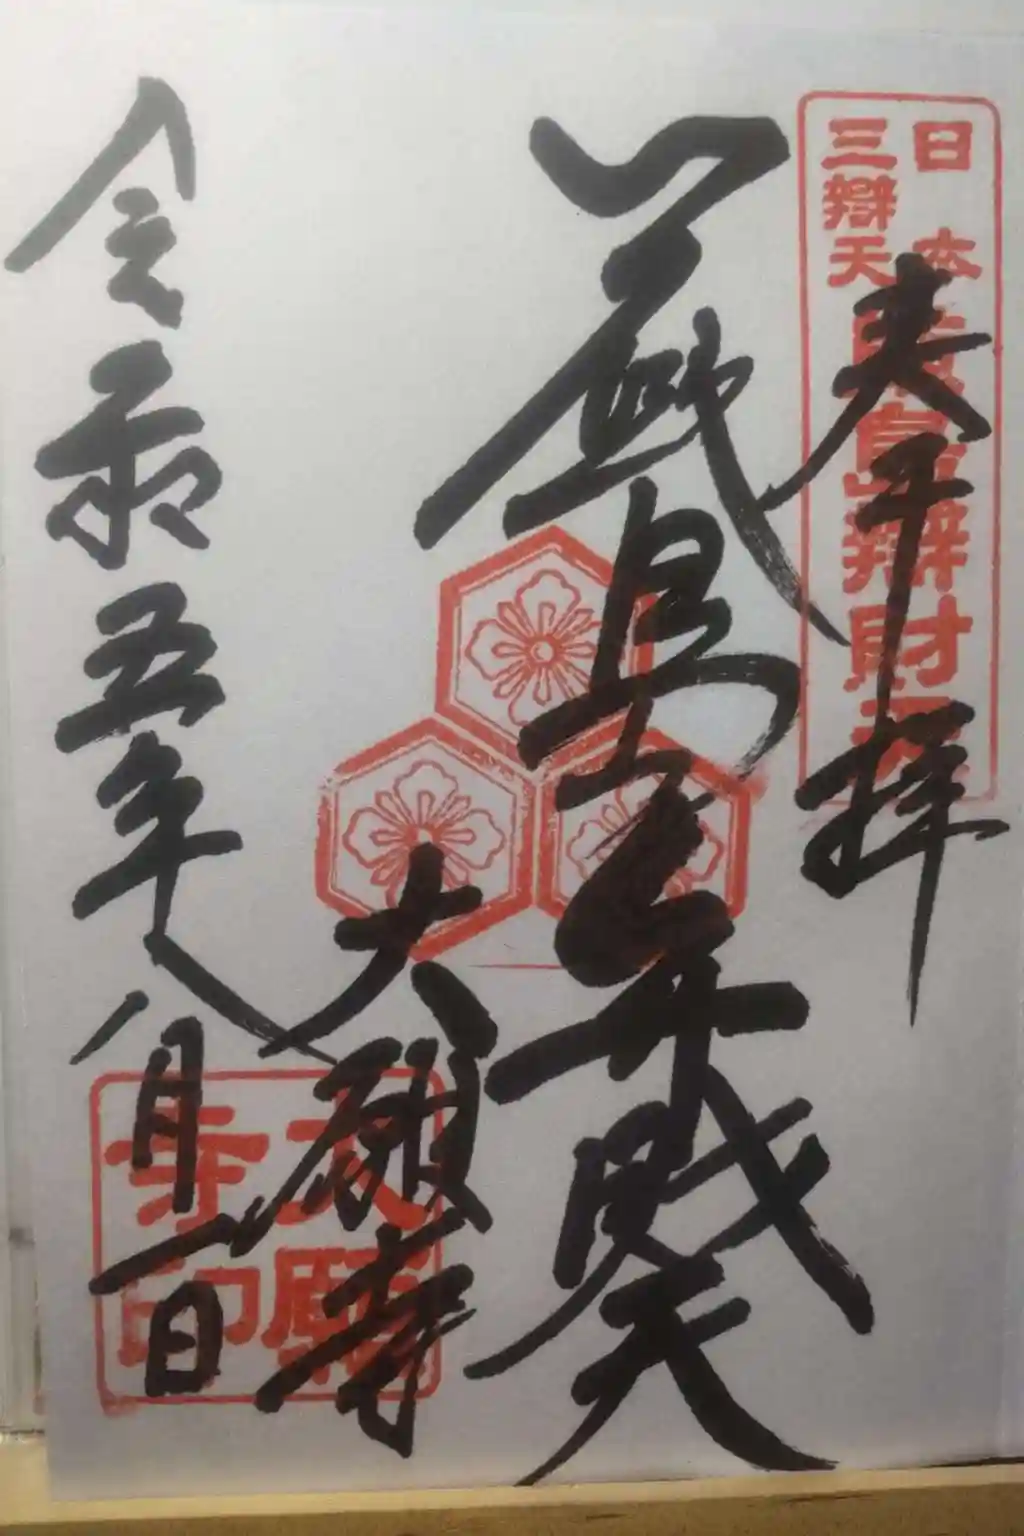 日本
三辯天
嚴島辯財天
奉拝
厳島弁財天
大願寺
大願
寺印
令和五年八月一日